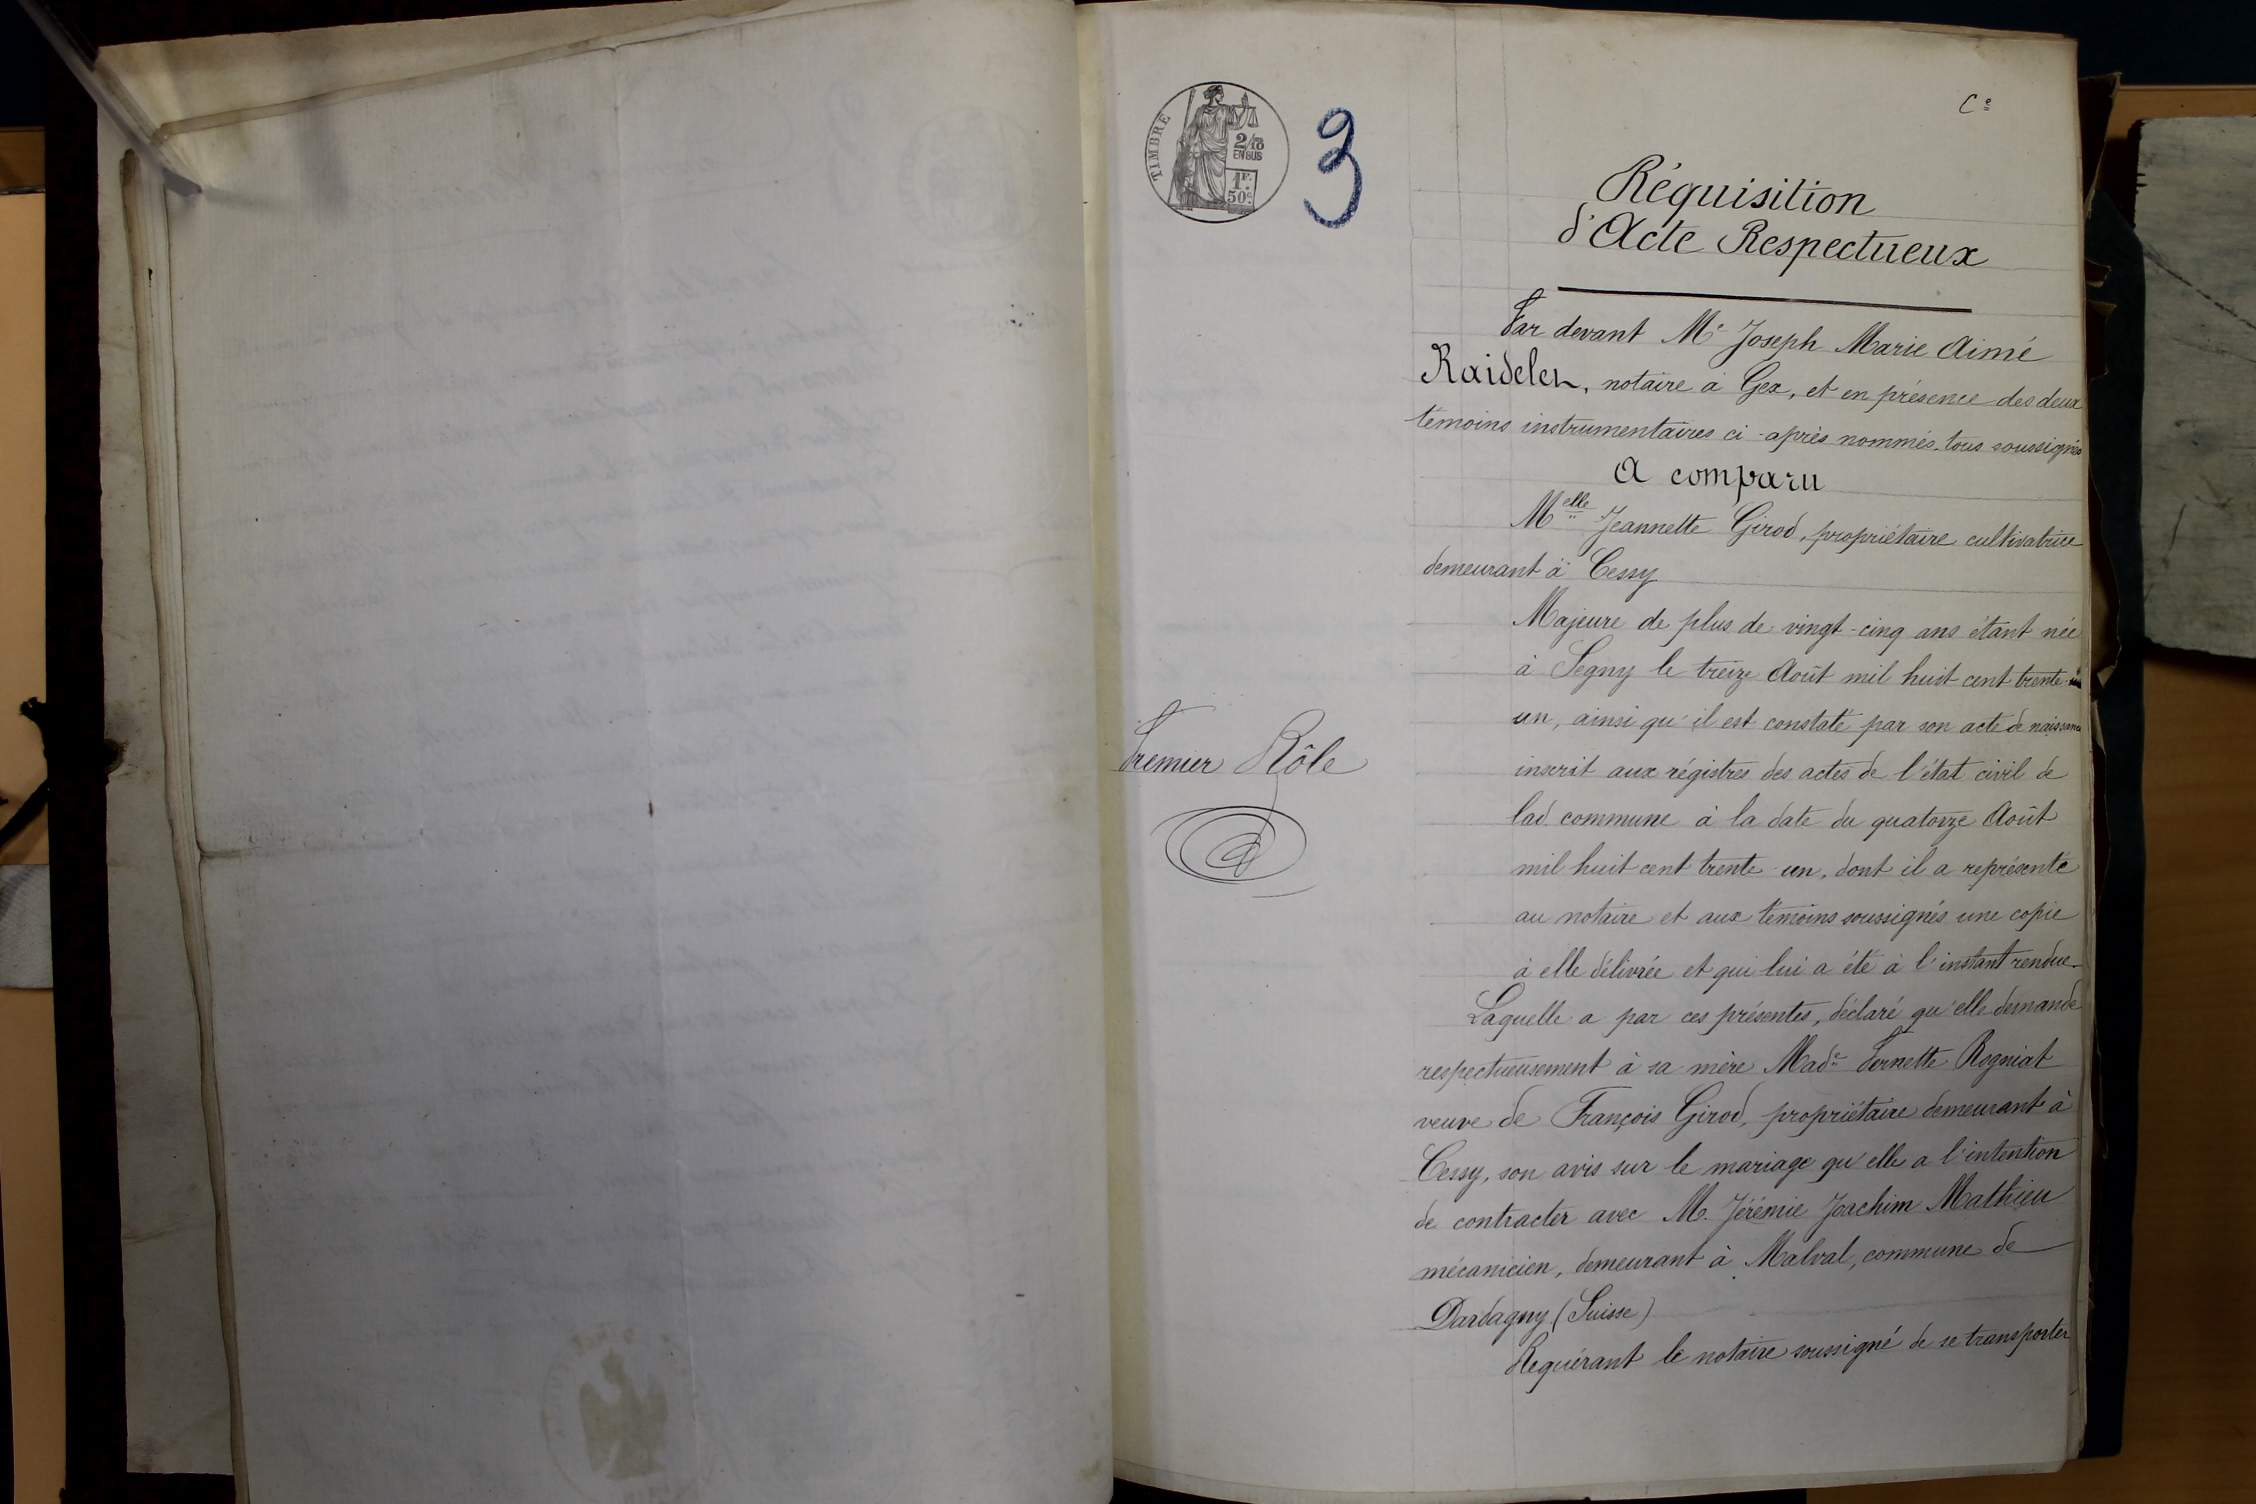 TIMBRE
2/10
EN SUS
1F.
50c
3
Ce
Réquisition
d'Acte Respectueux
Par devant Me Joseph Marie Aimé
Raidelet, notaire à Gex, et en présence des deux
témoins instrumentaires ci-après nommés, tous soussignés
A comparu
Melle Jeannette Girod, propriétaire cultivatrice
demeurant à Cessy
Majeure de plus de vingt-cinq ans étant née
à Segny le treize Août mil huit cent trente
un, ainsi qu'il est constaté par son acte de naissance
inscrit aux régistres des actes de l'état civil de
lad. commune à la date du quatorze Août
mil huit cent trente un, dont il a représenté
au notaire et aux témoins soussignés une copie
à elle délivrée et qui lui a été à l'instant rendue.
Laquelle a par ces présentes, déclaré qu'elle demande
respectueusement à sa mère Made Pernette Rogniat
veuve de François Girod, propriétaire demeurant à
Cessy, son avis sur le mariage qu'elle a l'intention
de contracter avec M. Jérémie Joachim Mathieu
mécanicien, demeurant à Malval, commune de
Dardagny (Suisse)
Requérant le notaire soussigné de se transporter
Premier Rôle